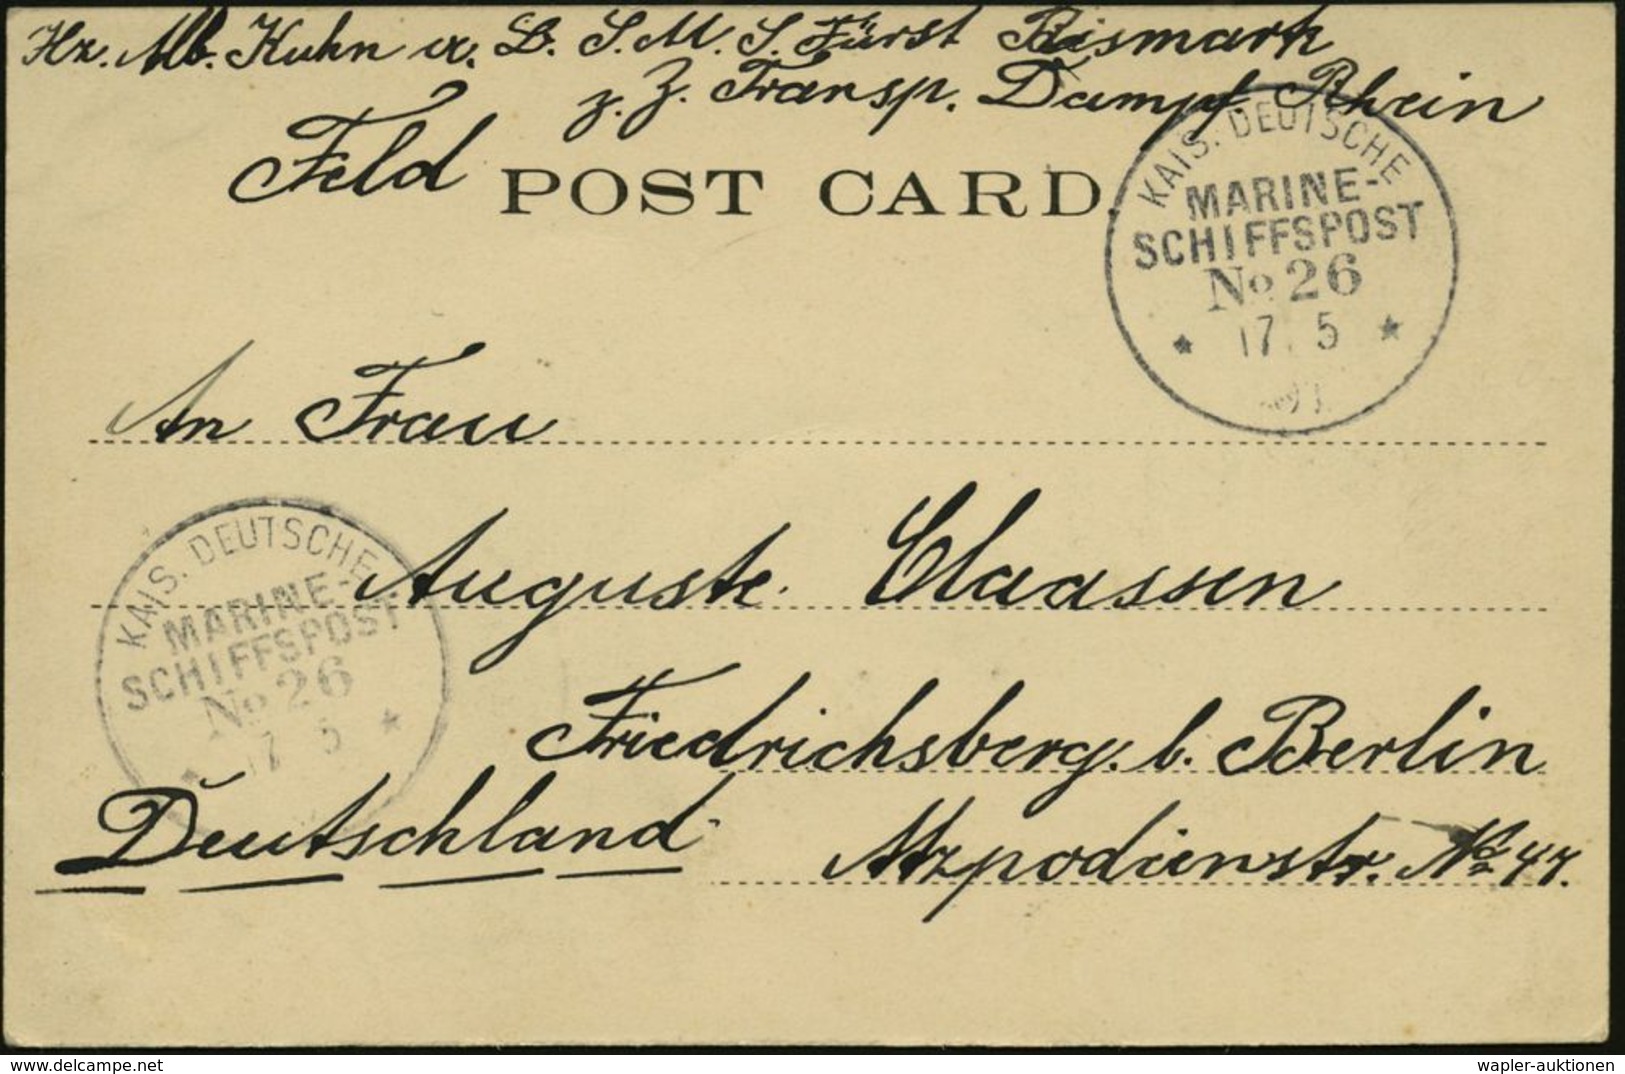 Hz. Mb. Kuhn a. B. S. M. S. Fürst Bismark
z. Z. Transp. Dampf. Rhein
Feld POST CARD
KAIS. DEUTSCHE
MARINE-
SCHIFFSPOST
No 26
* 17 5 *
An Frau
Auguste Claassen
KAIS. DEUTSCHE
MARINE-
SCHIFFSPOST
No 26
* 17 5 *
Friedrichsberg. b. Berlin
Deutschland No 47.
wapler-auktionen